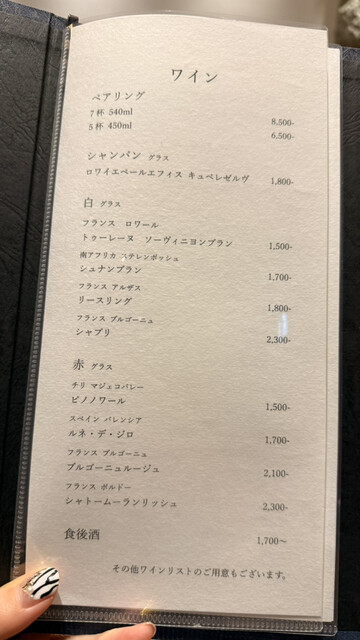 ワイン
ペアリング
7杯 540ml 8,500-
5杯 450ml 6,500-
シャンパン グラス
ロワイエペールエフィス キュベレゼルヴ 1,800-
白 グラス
フランス ロワール
トゥーレーヌ ソーヴィニヨンブラン 1,500-
南アフリカ ステレンボッシュ
シュナンブラン 1,700-
フランス アルザス
リースリング 1,800-
フランス ブルゴーニュ
シャブリ 2,300-
赤 グラス
チリ マジェコバレー
ピノノワール 1,500-
スペイン バレンシア
ルネ・デ・ジロ 1,700-
フランス ブルゴーニュ
ブルゴーニュルージュ 2,100-
フランス ボルドー
シャトームーランリッシュ 2,300-
食後酒 1,700〜
その他ワインリストのご用意もございます。